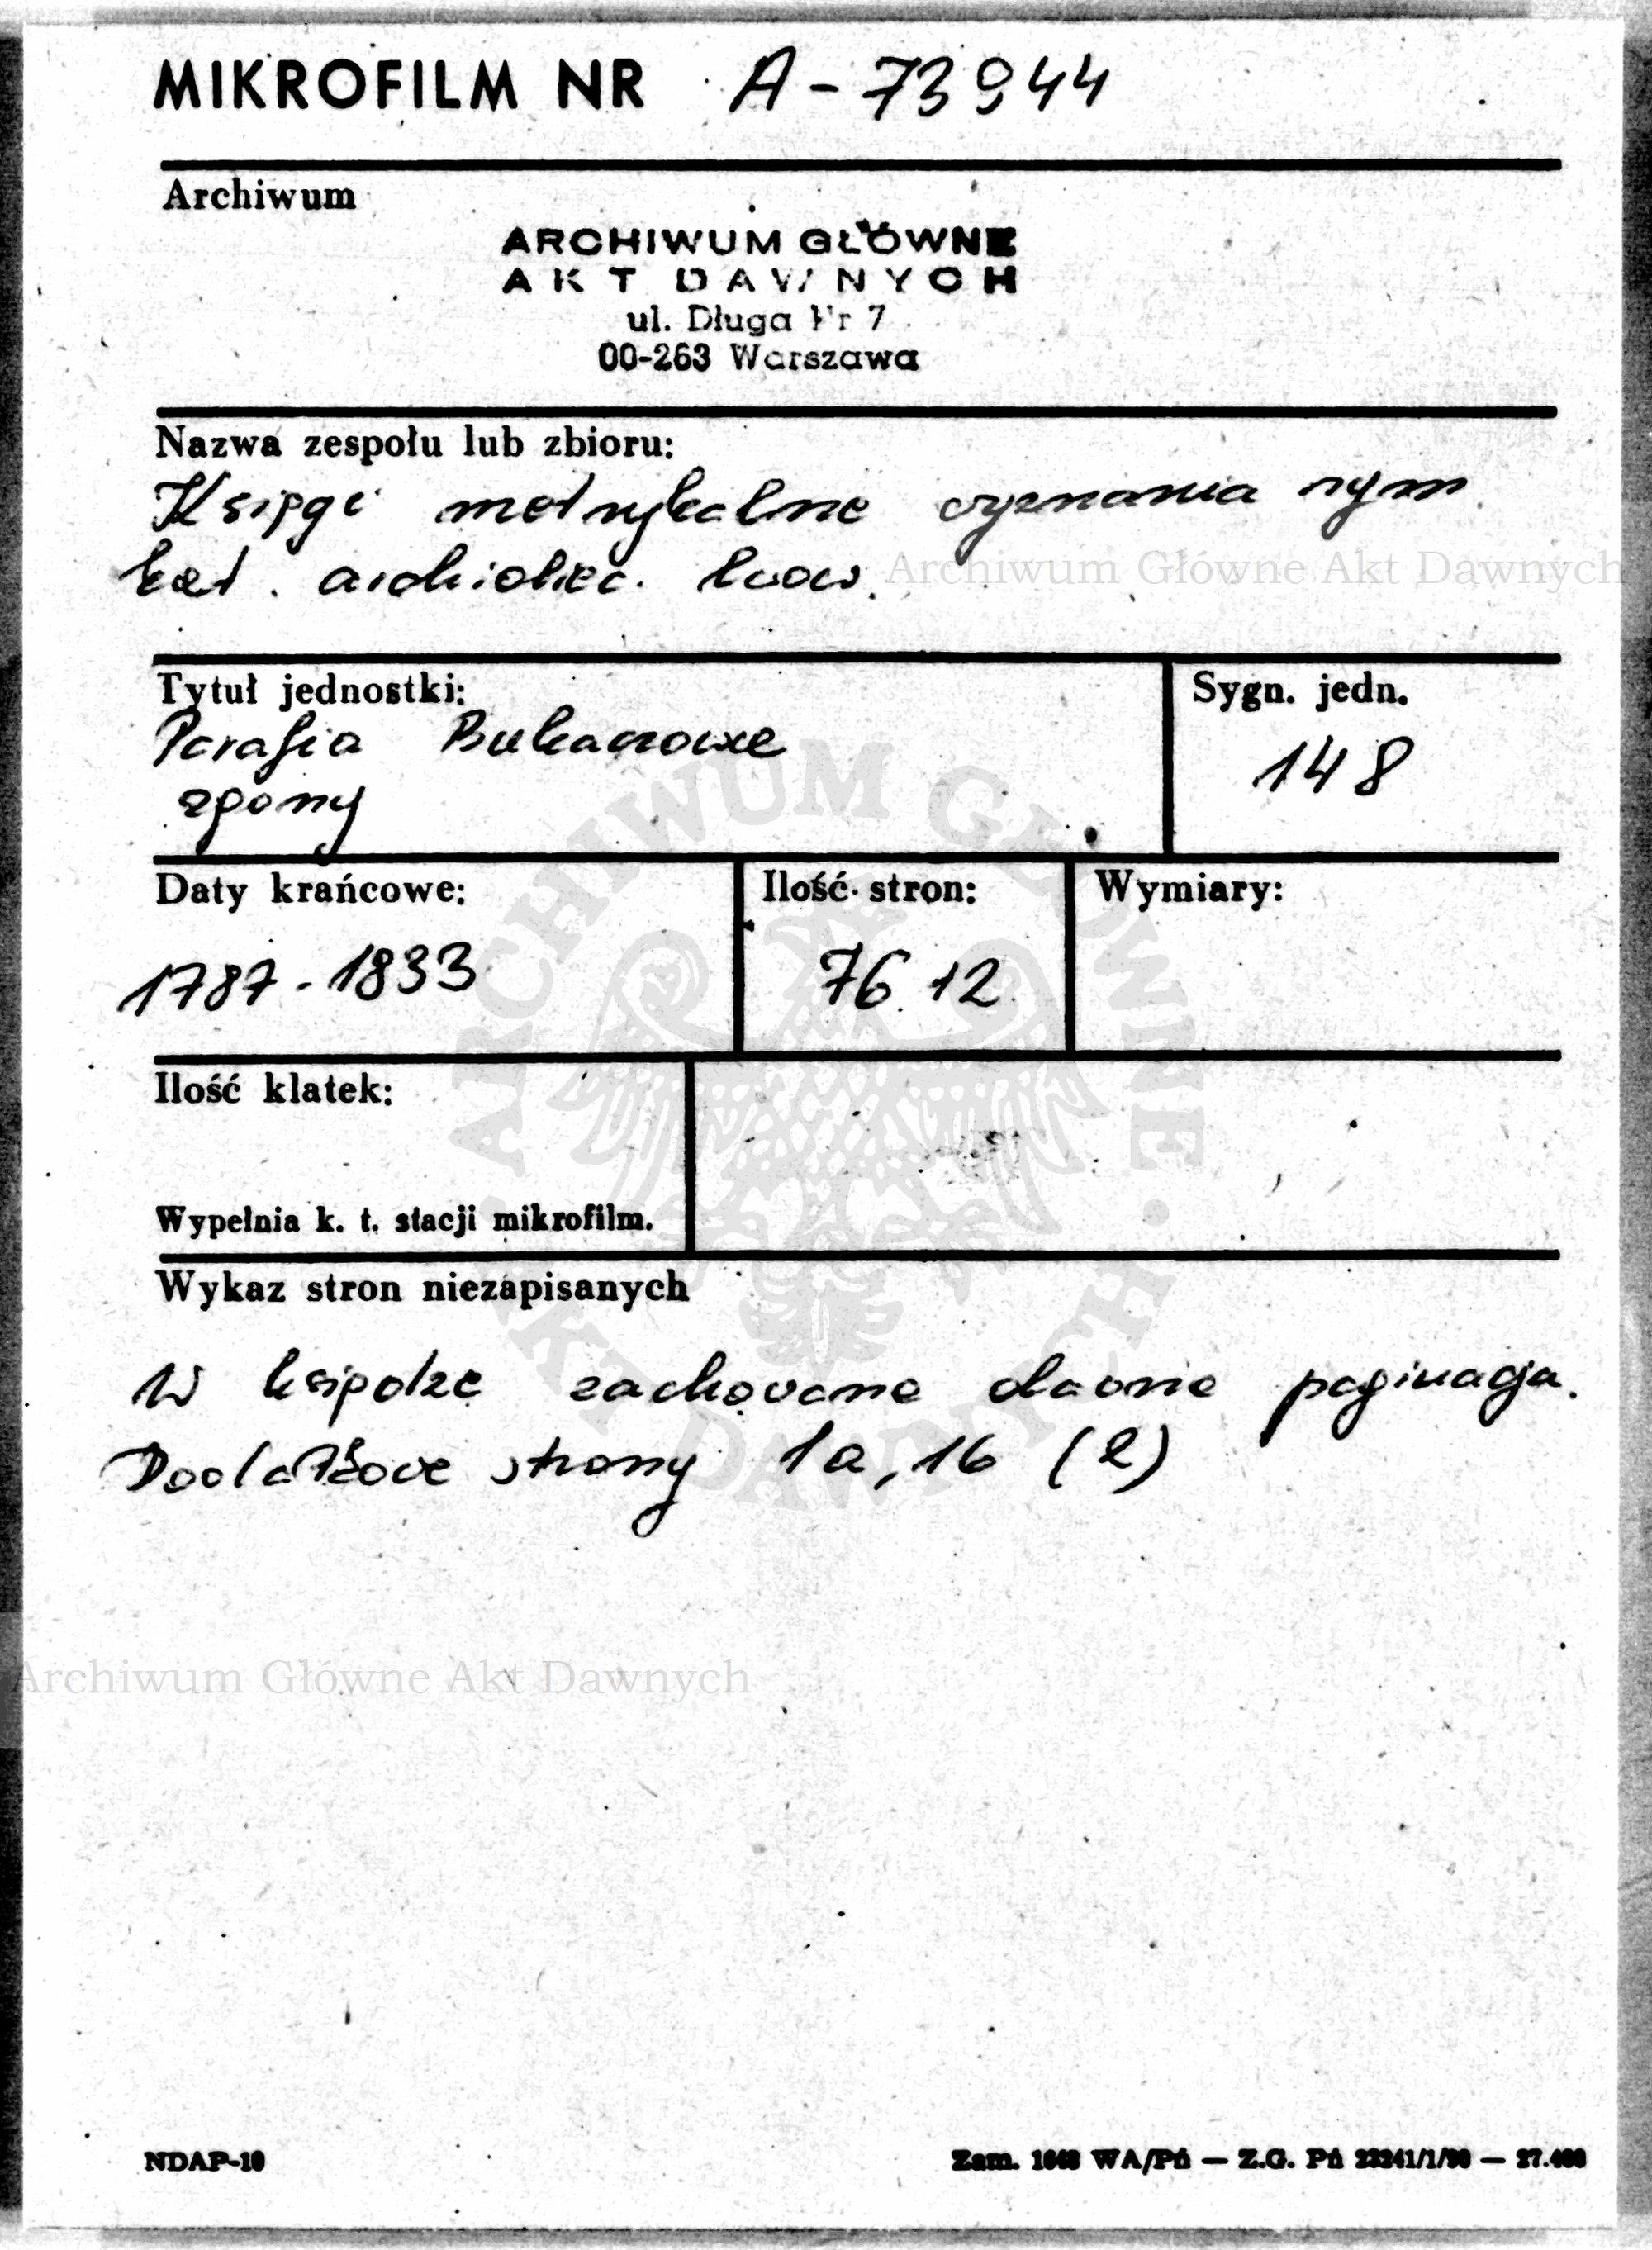 MIKROFILM NR A-73944
Archiwum
ARCHIWUM GŁÓWNE
AKT DAWNYCH
ul. Długa Nr 7
00-263 Warszawa
Nazwa zespołu lub zbioru:
Księgi metrykalne wyznania rzym
kat. archidiec. lwow.
Archiwum Główne Akt Dawnych
Tytuł jednostki:
Parafia Bukaczowce
zgony
Sygn. jedn.
148
Daty krańcowe:
1787-1833
Ilość stron:
76 +2
Wymiary:
Ilość klatek:
Wypełnia k. t. stacji mikrofilm.
ARCHIWUM GŁÓWNE AKT DAWNYCH
Wykaz stron niezapisanych
W księdze zachowano dawną paginację.
Dodatkowe strony 1a, 1b (2)
Archiwum Główne Akt Dawnych
NDAP-10
Zam. WA/Pń — Z.G. Pń